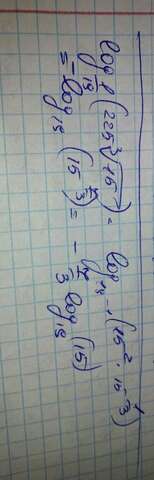 log 1/15 (225 ∛15) = log 15⁻¹ (15² · 15^1/3)
= -log 15 (15^7/3) = - 7/3 log 15 (15)